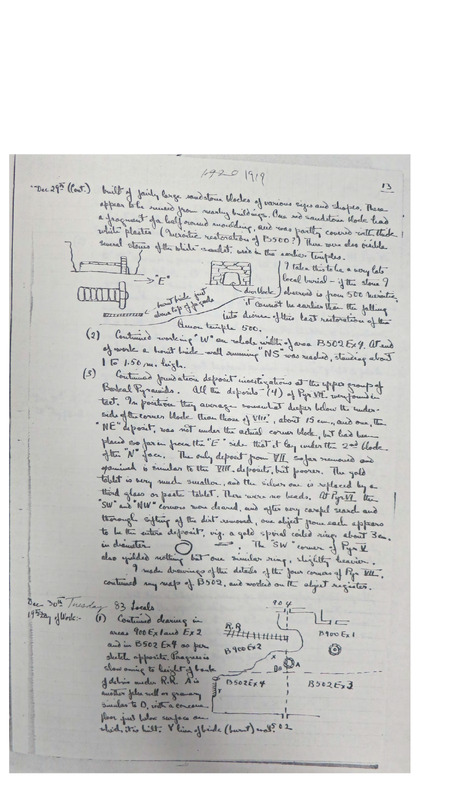 1919
13
Dec 29th (Cont.) built of fairly large sandstone blocks of various sizes and shapes. These
appear to be reused from nearby buildings. One red sandstone block had
a fragment of a half round moulding, and was partly covered with thick
white plaster (Meroitic restoration of B500?) There were also visible
several stones of the white used in the earlier temples.
"E"
door block
burnt brick put
down top of
I take this to be a very late
local burial - if the stone I
observed is from 500 Meroitic,
it cannot be earlier than the falling
into disuse of this last restoration of the
Amon temple 500.
(2) Continued working "W" on whole width of area B502 Ex 4. At end
of work a burnt brick wall running NS was reached, standing about
1 to 1.50 m. high.
(3) Continued foundation deposit investigations at the upper group of
Barkal Pyramids. All the deposits (4) of Pyr VII were found in-
tact. In position they average somewhat deeper below the under-
side of the corner block than those of VIII, about 15 cm, and one, the
"NE" deposit, was not under the actual corner block, but had been
placed so far in from the "E" side that it lay under the 2nd block
of the "N" face. The only deposit from VII so far removed and
examined is similar to the VIII deposits, but poorer. The gold
tablet is very much smaller, and the silver one is replaced by a
third glass or paste tablet. There were no beads. At Pyr VI the
"SW" and "NW" corners were cleared, and after very careful search and
thorough sifting of the dirt removed, one object from each appears
to be the entire deposit, viz. a gold spiral coiled ring about 3 cm.
in diameter. The "SW" corner of Pyr V
also yielded nothing but one similar ring, slightly heavier.
I made drawings of the details of the four corners of Pyr VIII,
continued my map of B502, and worked on the object register.
Dec 30th Tuesday 83 Locals
19th Day of Work:-
(1) Continued clearing in
areas 900 Ex 1 and Ex 2
and in B502 Ex 4 as per
sketch opposite. Progress is
slow owing to height of bank
of debris under R.R. A is
another well or granary
similar to B, with a
floor just below surface on
which it is built. Y line of brick (burnt) wall.
904
R.R.
B900 Ex 1
B900 Ex 2
X
A
B
B502 Ex 4
B502 Ex 3
Y
B502